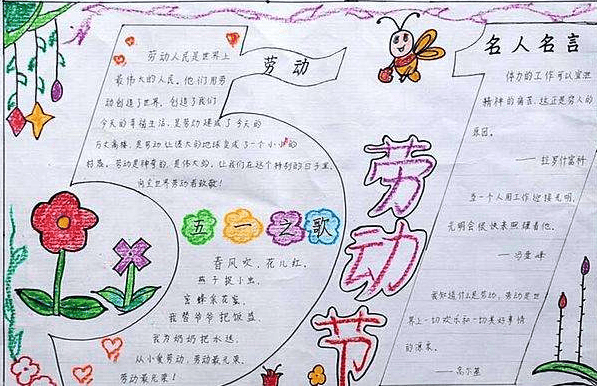 劳动
劳动人民是世界上
最伟大的人民。他们用劳
动创造了世界，创造了我们
今天的幸福生活。是劳动建成了今天的
万丈高楼，是劳动让偌大的地球变成了一个小小的
村落。劳动是神奇的，是伟大的。让我们在这个特别的日子里，
向全世界劳动者致敬！
五一之歌
春风吹，花儿红，
燕子捉小虫，
蜜蜂采花蜜，
我替爷爷把饭盛，
我为奶奶把水送，
从小爱劳动，劳动最光荣，
劳动最光荣！
劳动节
名人名言
体力的工作可以宣泄
精神的痛苦，这正是穷人的
原因。
——拉罗什富科
当一个人用工作迎接光明，
光明会很快来照耀着他。
——冯雪峰
我知道什么是劳动，劳动是世
界上一切欢乐和一切美好事情
的源泉。
——高尔基